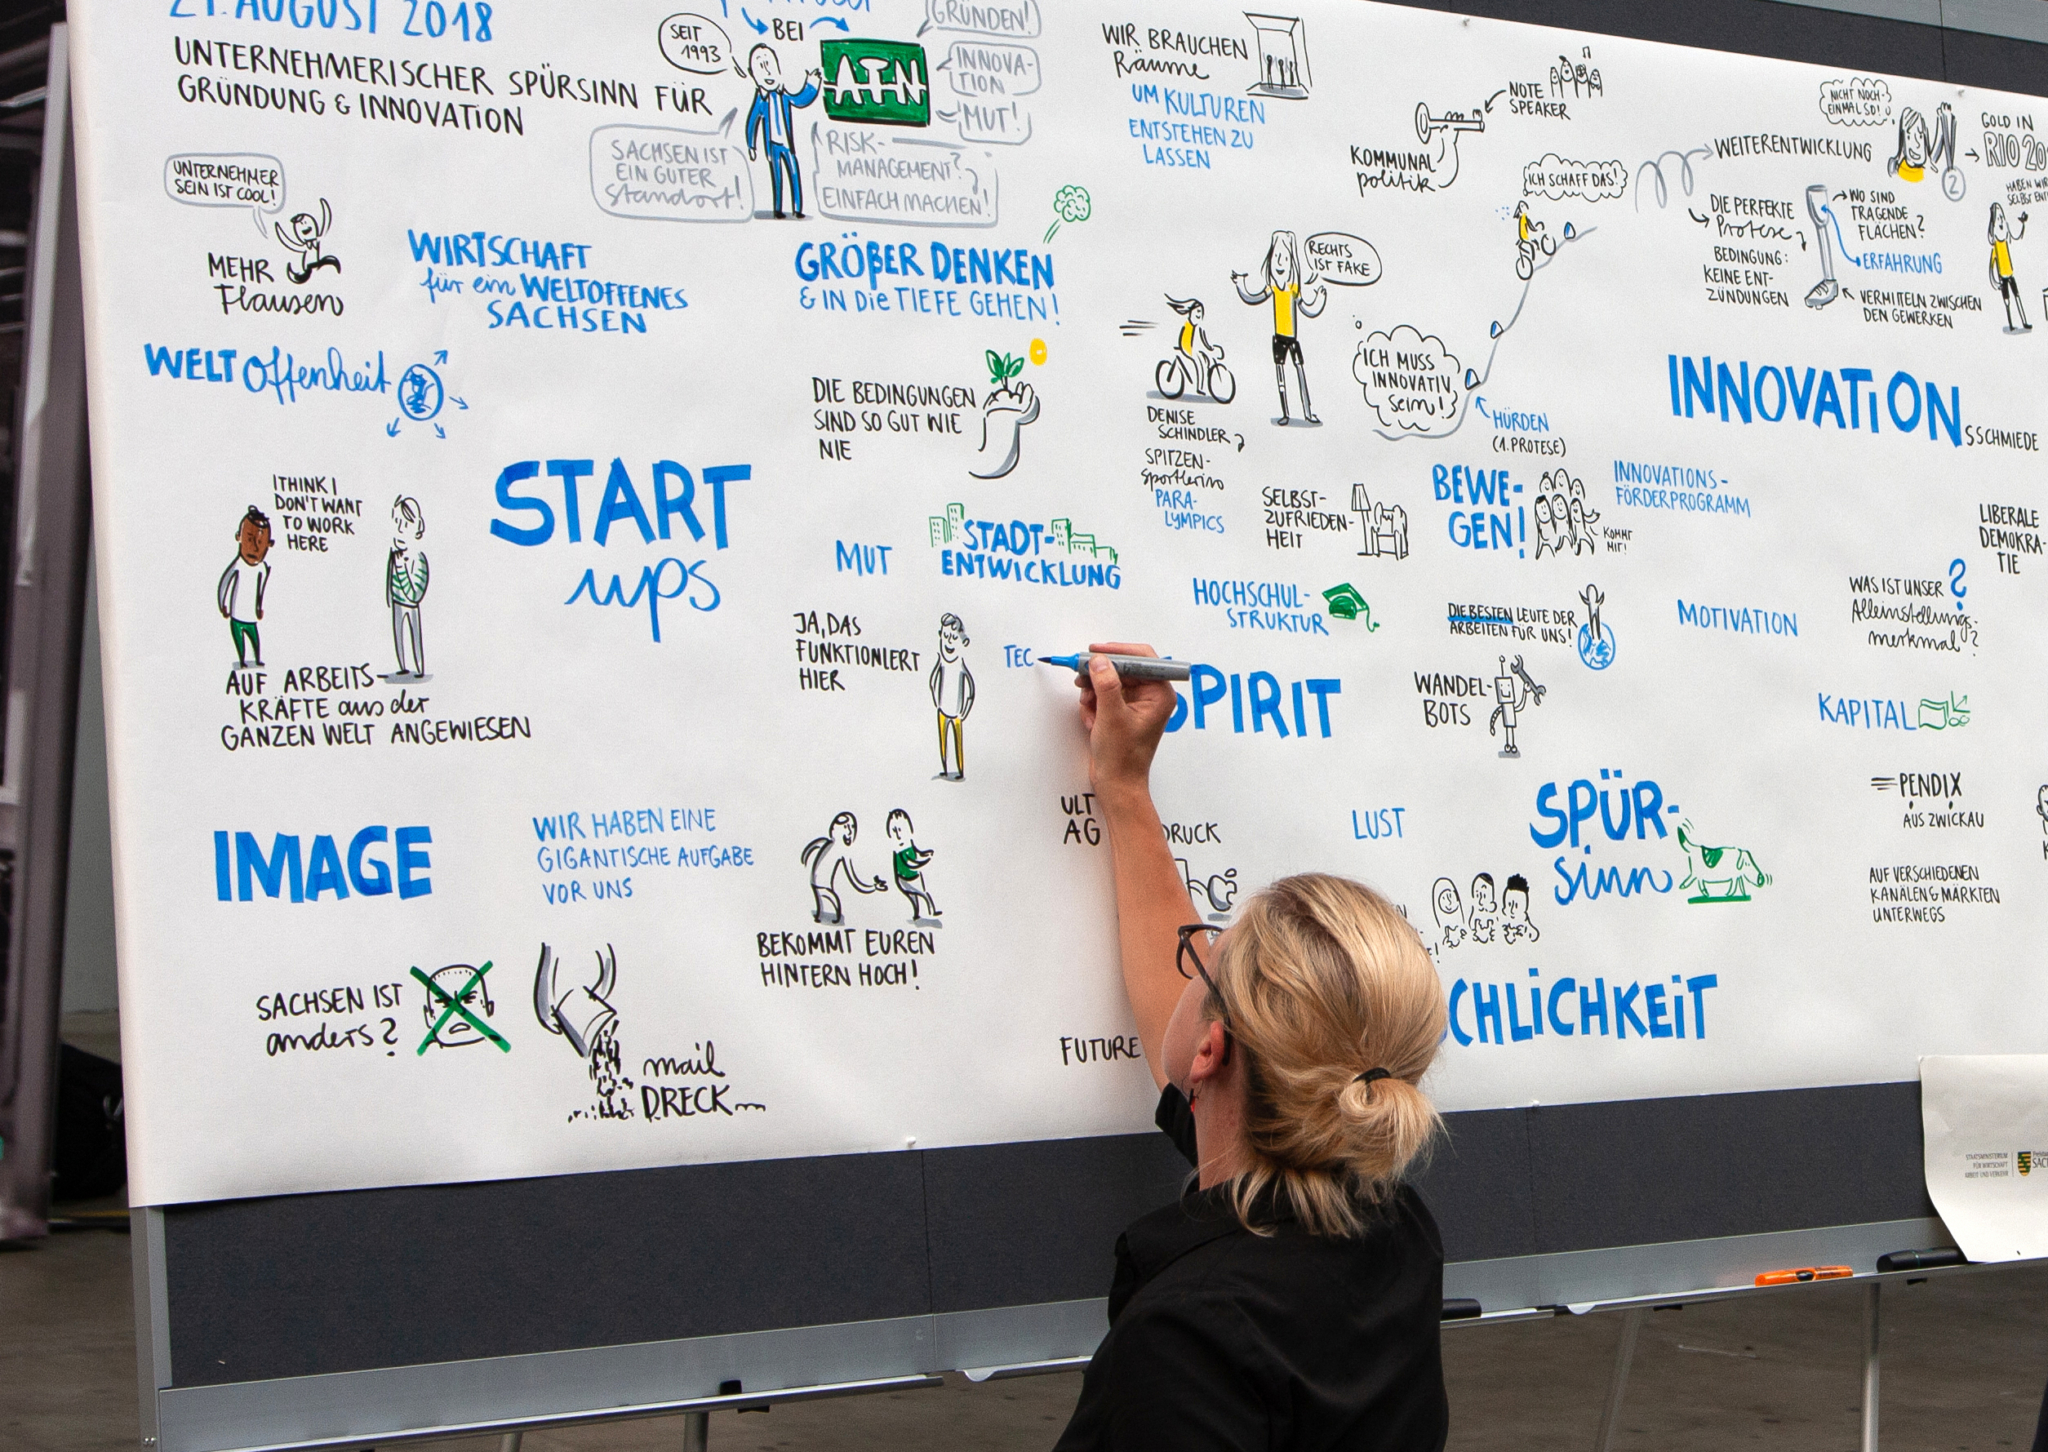 AUGUST 2018
UNTERNEHMERISCHER SPÜRSINN FÜR
GRÜNDUNG & INNOVATION
SEIT
1993
BEI
GRÜNDEN!
INNOVA-
TION
MUT!
SACHSEN IST
EIN GUTER
Standort!
RISK-
MANAGEMENT?
EINFACH MACHEN!
UNTERNEHMER
SEIN IST COOL!
MEHR
Flausen
WIRTSCHAFT
für ein WELTOFFENES
SACHSEN
GRÖßER DENKEN
& IN DIE TIEFE GEHEN!
WELT Offenheit
DIE BEDINGUNGEN
SIND SO GUT WIE
NIE
I THINK I
DON'T WANT
TO WORK
HERE
AUF ARBEITS-
KRÄFTE aus der
GANZEN WELT ANGEWIESEN
START
ups
MUT
STADT-
ENTWICKLUNG
JA, DAS
FUNKTIONIERT
HIER
TEC
SPIRIT
IMAGE
WIR HABEN EINE
GIGANTISCHE AUFGABE
VOR UNS
BEKOMMT EUREN
HINTERN HOCH!
SACHSEN IST
anders?
mail
DRECK
ULT
AG
DRUCK
FUTURE
WIR BRAUCHEN
Räume
UM KULTUREN
ENTSTEHEN ZU
LASSEN
NOTE
SPEAKER
KOMMUNAL
politik
ICH SCHAFF DAS!
RECHTS
IST FAKE
DENISE
SCHINDLER
SPITZEN-
sportlerin
PARA-
LYMPICS
ICH MUSS
INNOVATIV
sein!
HÜRDEN
(1. PROTESE)
WEITERENTWICKLUNG
NICHT NOCH-
EINMAL SO!
2
GOLD IN
RIO 20
HABEN WIR
SELBST ENT
DIE PERFEKTE
Protese
BEDINGUNG:
KEINE ENT-
ZÜNDUNGEN
WO SIND
TRAGENDE
FLÄCHEN?
ERFAHRUNG
VERMITTELN ZWISCHEN
DEN GEWERKEN
INNOVATION
SSCHMIEDE
SELBST-
ZUFRIEDEN-
HEIT
BEWE-
GEN!
KOMMT
MIT!
INNOVATIONS-
FÖRDERPROGRAMM
LIBERALE
DEMOKRA-
TIE
HOCHSCHUL-
STRUKTUR
DIE BESTEN LEUTE DER
ARBEITEN FÜR UNS!
MOTIVATION
WAS IST UNSER ?
Alleinstellungs-
merkmal?
WANDEL-
BOTS
KAPITAL
LUST
SPÜR-
sinn
PENDIX
AUS ZWICKAU
AUF VERSCHIEDENEN
KANÄLEN & MÄRKTEN
UNTERWEGS
CHLICHKEIT
STAATSMINISTERIUM
FÜR WIRTSCHAFT
ARBEIT UND VERKEHR